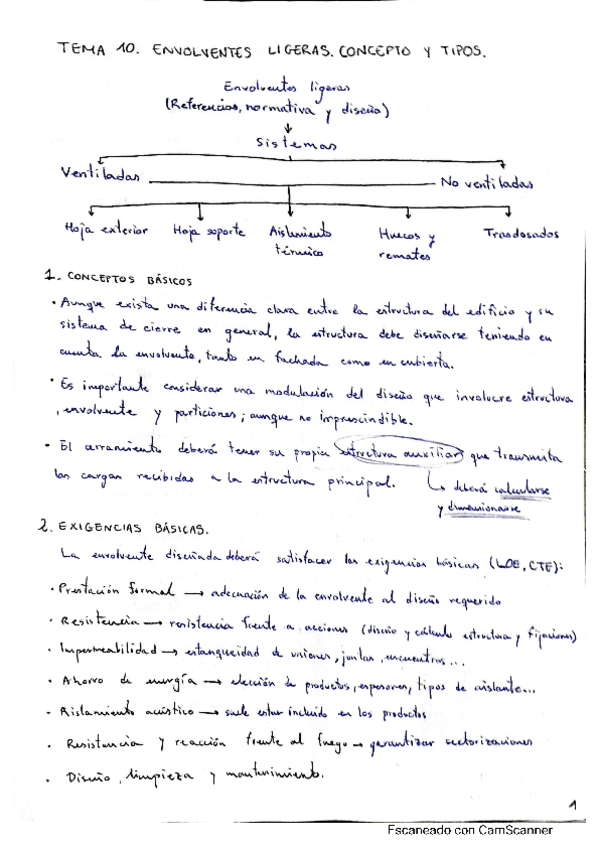 TEMA 10. ENVOLVENTES LIGERAS. CONCEPTO Y TIPOS.
Envolventes ligeras
(Referencias, normativa y diseño)
Sistemas
Ventiladas
No ventiladas
Hoja exterior Hoja soporte Aislamiento térmico Huecos y remates Trasdosados
1. CONCEPTOS BÁSICOS
· Aunque exista una diferencia clara entre la estructura del edificio y su
sistema de cierre en general, la estructura debe diseñarse teniendo en
cuenta la envolvente, tanto en fachada como en cubierta.
· Es importante considerar una modulación del diseño que involucre estructura
, envolvente y particiones; aunque no imprescindible.
· El cerramiento deberá tener su propia estructura auxiliar que transmita
las cargas recibidas a la estructura principal.
↳ deberá calcularse
y dimensionarse
2. EXIGENCIAS BÁSICAS.
La envolvente diseñada deberá satisfacer las exigencias básicas (LOE, CTE):
· Prestación formal → adecuación de la envolvente al diseño requerido
· Resistencia → resistencia frente a acciones (diseño y cálculo estructura y fijaciones)
· Impermeabilidad → estanqueidad de uniones, juntas, encuentros...
· Ahorro de energía → elección de productos, espesores, tipos de aislante...
· Aislamiento acústico → suele estar incluido en los productos
· Resistencia y reacción frente al fuego → garantizar sectorizaciones
· Diseño, limpieza y mantenimiento.
1
Escaneado con CamScanner